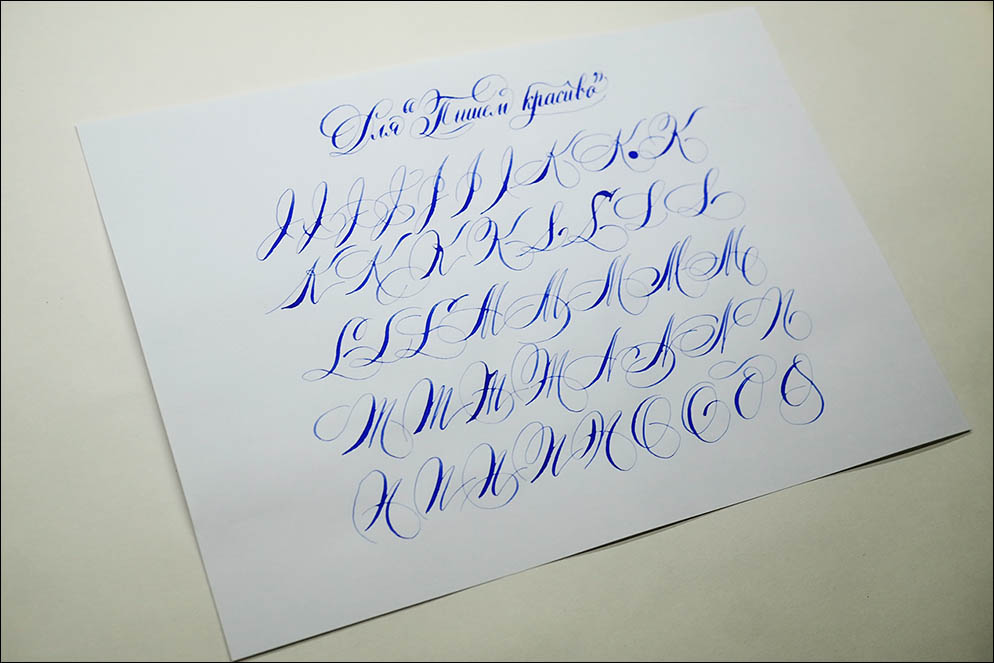 Для "Пишем красиво"
J J J J J J J K K. K
K K K K L L L L
L L L M M M M M
M M M M N N N N
N N N N N O O O O